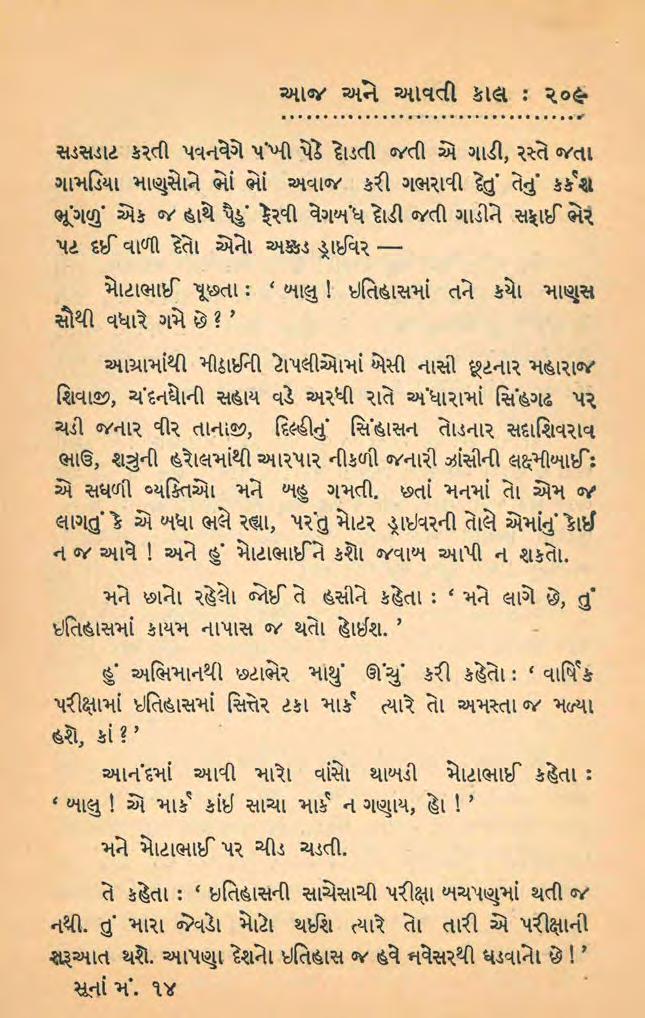 આજ અને આવતી કાલ : ૨૦૯
સડસડાટ કરતી પવનવેગે પંખી પેઠે દોડતી જતી એ ગાડી, રસ્તે જતા
ગામડિયા માણસોને ભોં ભોં અવાજ કરી ગભરાવી દેતું તેનું કર્કશ
ભૂંગળું એક જ હાથે પૈડું ફેરવી વેગબંધ દોડી જતી ગાડીને સફાઈ ભેર
પટ દઈ વાળી દેતો એનો અક્કડ ડ્રાઈવર —
મોટાભાઈ પૂછતા : ‘ બાલુ ! ઇતિહાસમાં તને કયો માણસ
સૌથી વધારે ગમે છે ? ’
આગ્રામાંથી મીઠાઈની ટોપલીઓમાં બેસી નાસી છૂટનાર મહારાજ
શિવાજી, ચંદનઘોની સહાય વડે અરધી રાતે અંધારામાં સિંહગઢ પર
ચડી જનાર વીર તાનાજી, દિલ્હીનું સિંહાસન તોડનાર સદાશિવરાવ
ભાઉ, શત્રુની હરોલમાંથી આરપાર નીકળી જનારી ઝાંસીની લક્ષ્મીબાઈ :
એ સઘળી વ્યક્તિઓ મને બહુ ગમતી. છતાં મનમાં તો એમ જ
લાગતું કે એ બધા ભલે રહ્યા, પરંતુ મોટર ડ્રાઇવરની તોલે એમાંનું કોઈ
ન જ આવે ! અને હું મોટાભાઈને કશો જવાબ આપી ન શકતો.
મને છાનો રહેલો જોઈ તે હસીને કહેતા : ‘ મને લાગે છે, તું
ઇતિહાસમાં કાયમ નાપાસ જ થતો હોઇશ. ’
હું અભિમાનથી છટાભેર માથું ઊંચું કરી કહેતો : ‘ વાર્ષિક
પરીક્ષામાં ઇતિહાસમાં સિત્તેર ટકા માર્ક ત્યારે તો અમસ્તા જ મળ્યા
હશે, કાં ? ’
આનંદમાં આવી મારો વાંસો થાબડી મોટાભાઈ કહેતા :
‘ બાલુ ! એ માર્ક કાંઇ સાચા માર્ક ન ગણાય, હો ! ’
મને મોટાભાઈ પર ચીડ ચડતી.
તે કહેતા : ‘ ઇતિહાસની સાચેસાચી પરીક્ષા બચપણમાં થતી જ
નથી. તું મારા જેવડો મોટો થઇશ ત્યારે તો તારી એ પરીક્ષાની
શરૂઆત થશે. આપણા દેશનો ઇતિહાસ જ હવે નવેસરથી ઘડવાનો છે ! ’
સૂનાં મં. ૧૪